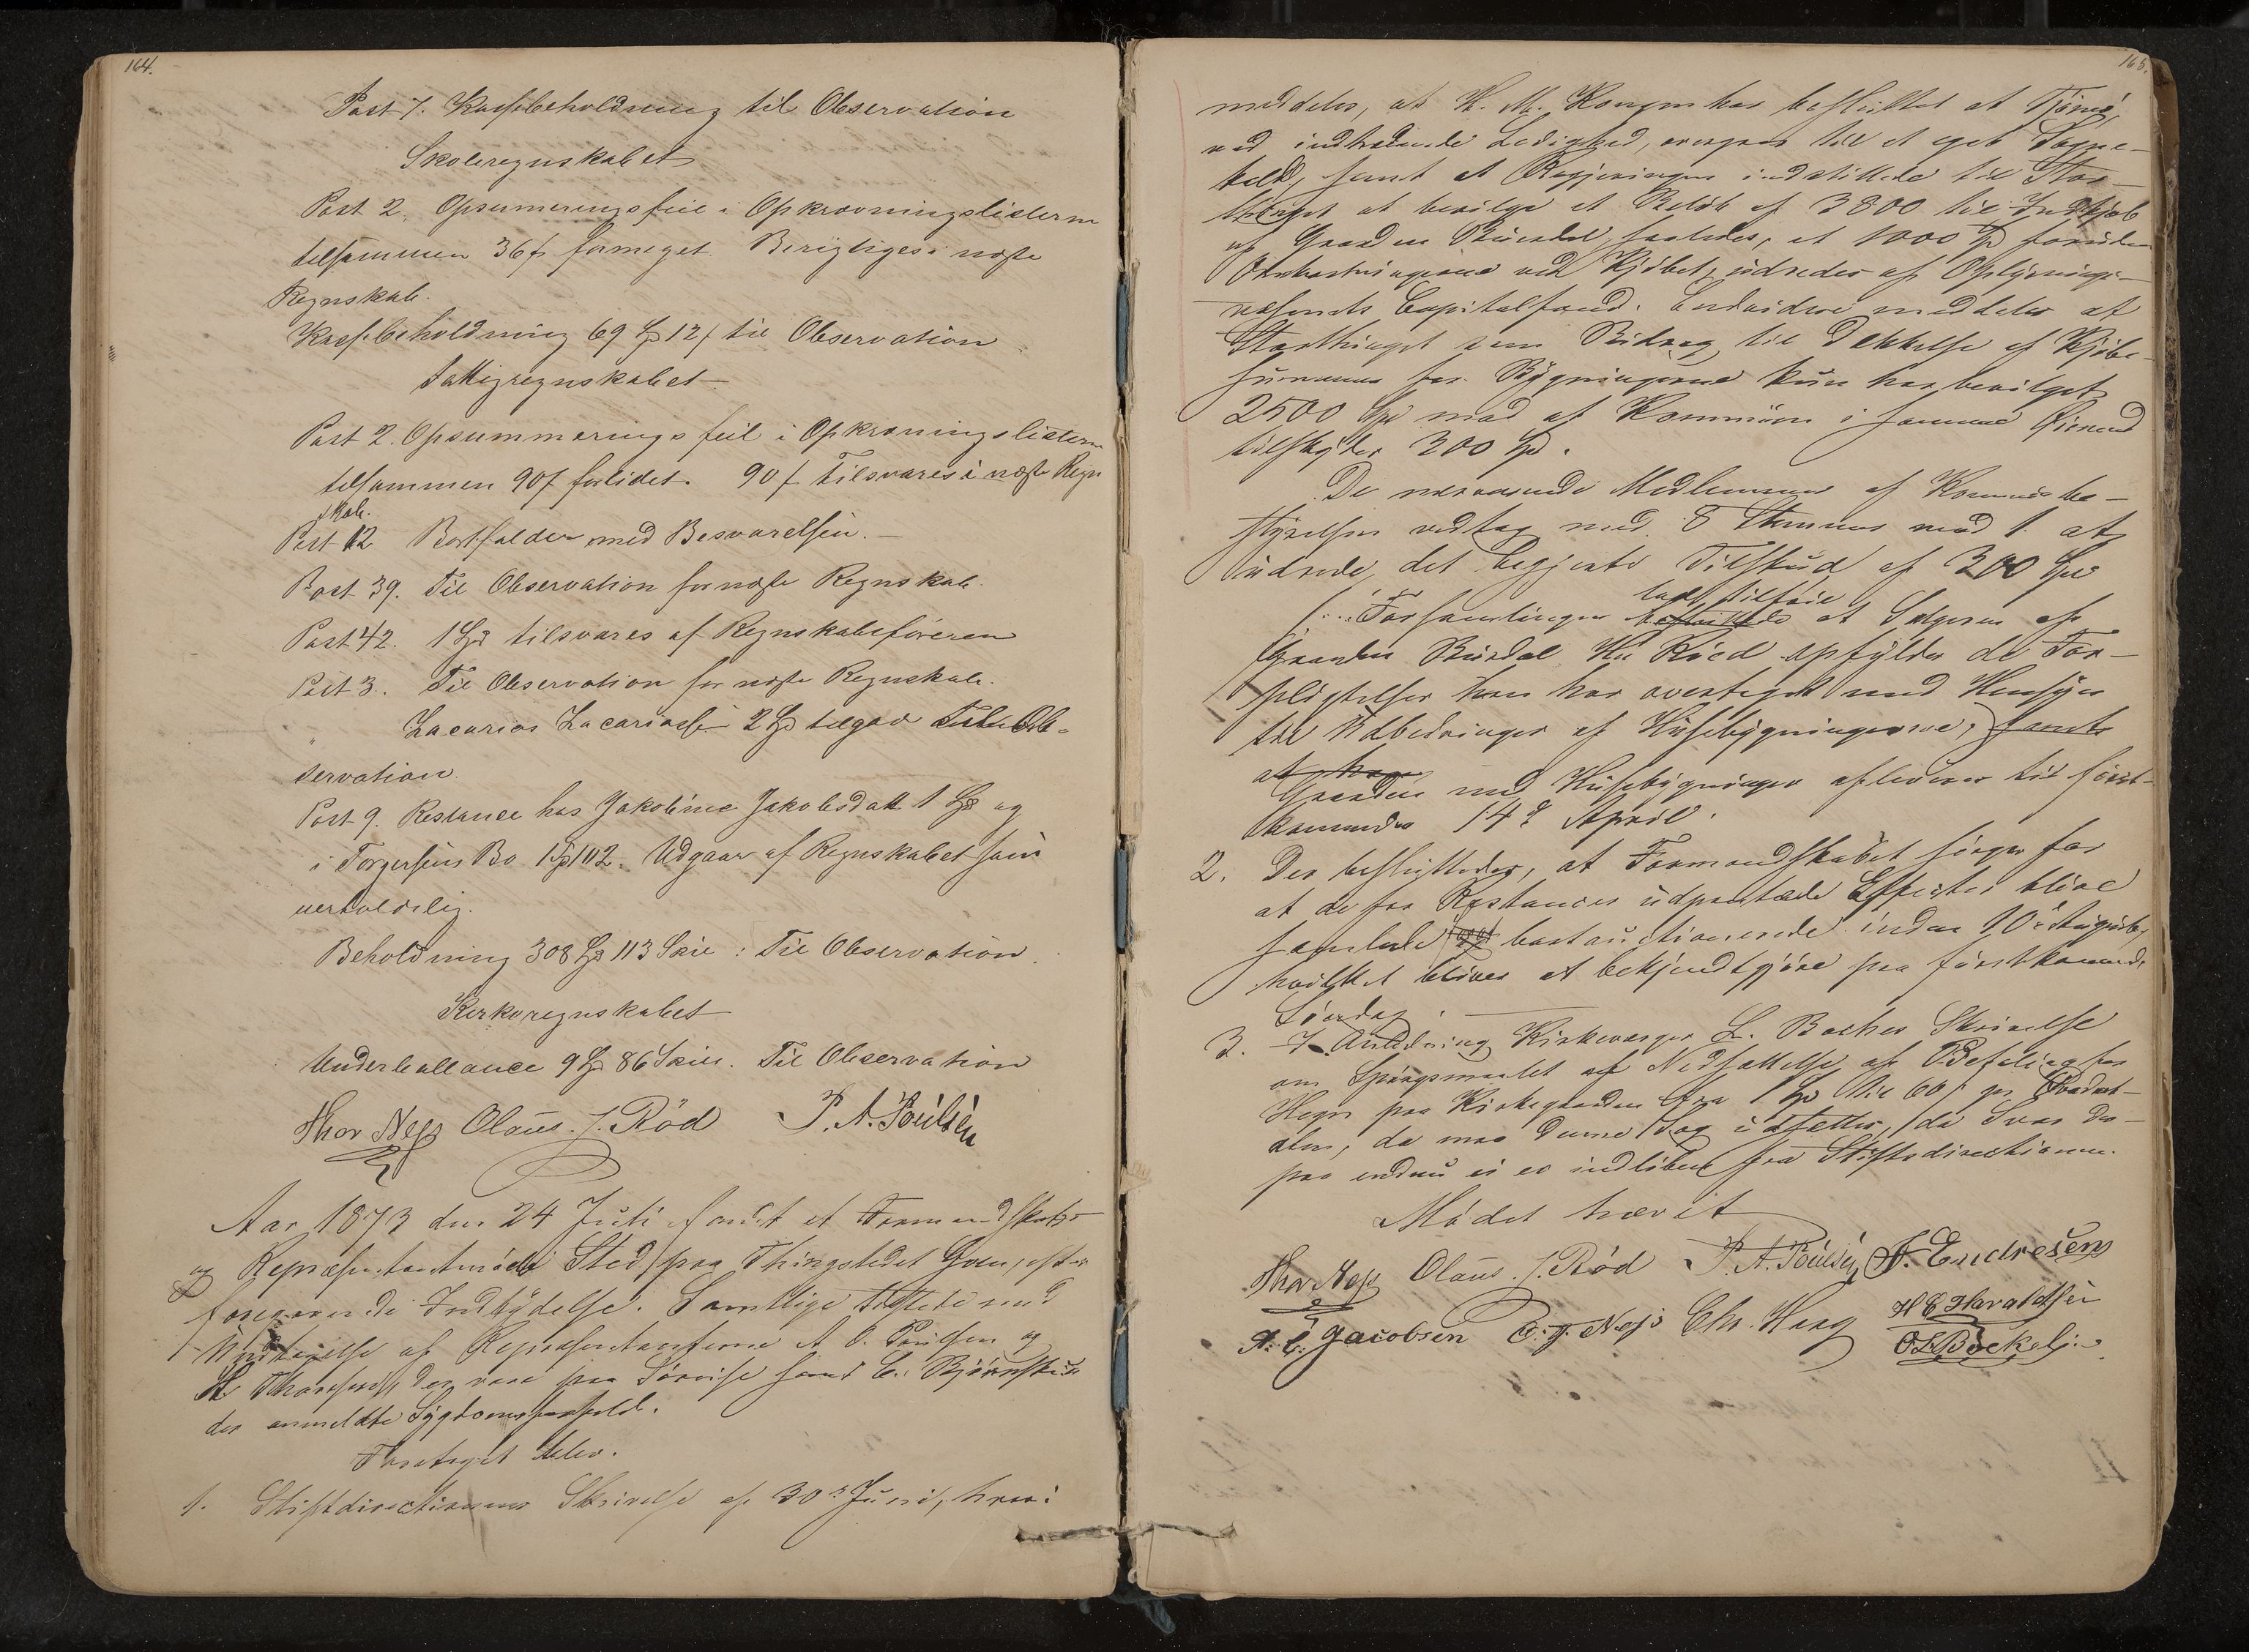 164.
Post 7. Kassebeholdning til Observation
Skoleregnskabet
Post 2. Opsumeringsfeil i Opkrævningslisterne
tilsammen 36 s formeget. Berigtiges i næste
Regnskab.
Kassebeholdning 69 Spd 12 s til Observation
Fattigregnskabet
Post 2. Opsummeringsfeil i Opkrævningslisterne
tilsammen 90 s forlidet. 90 s tilsvares i næste Regn
skab.
Post 12 Bortfalder med Besvarelsen.
Post 39. Til Observation for næste Regnskab.
Post 42. 1 Spd tilsvares af Regnskabsføreren
Post 3. Til Observation for næste Regnskab.
" Zacarias Zacariasen 2 Spd tilgode Til Ob-
servation.
Post 9. Restance hos Jakobine Jakobsdatt 1 Spd og
i Torgersens Bo 1 Spd 102. Udgaar af Regnskabet som
uerholdelig.
Beholdning 308 Spd 113 Skil: Til Observation.
Kirkeregnskabet
Underballance 9 Spd 86 Skill. Til Observation
Thor Næss Olaus J. Röd P. A. Poulsen
Aar 1873 den 24 Juli fandt et Formandskabs
og Repræsentantmøde Sted paa Thingstedet Gven, efter
foregaaende Indbydelse. Samtlige tilstede med
Undtagelse af Repræsentanterne A O. Poulsen og
H Thoresen, der vare paa Søreise samt C.
der anmeldte Sygdomsforfald.
Foretaget blev.
1. Stiftdirectionens Skrivelse af 30te Juni, hvori
165.
meddeles, at H. M. Kongen har besluttet at Tjømø,
ved indtrædende Ledighed, overgaar til et eget Sogne-
kald, samt at Regjeringen indstillede til Stor-
thinget at bevilge et Beløb af 3800 til Indkjøb
af Gaarden Buerdal, saaledes, at 1000 Spd foruden
Omkostningerne ved Kjøbet, udredes af Oplysnings-
væsenets Capitalfond. Endvidere meddeles at
Storthinget som Bidrag til Dækkelse af Kjøbe-
summen for Bygningerne kun har bevilget
2500 Spd mod at Kommunen i samme Øiemed
tilskyder 300 Spd.
De nærværende Medlemmer af Kommunebe-
styrelsen vedtog med 8 Stemmer mod 1 at
udrede det begjærte Tilskud af 300 Spd
lod tilføie
Forsamlingen besluttede at Sælgeren af
Gaarden Buerdal Hr. Röed opfylder de For-
pligtelser han har overtaget med Hensyn
til Udbedringer af Husebygningerne, samt
at han
Gaarden med Husebygninger afleveres til først-
kommende 14de April.
2. Der besluttedes, at Formandskabet sørger for
at de for Restancer udpantede Effecter blive
samlede og bortauctionerede inden 10de August,
hvilket bliver at bekjendtgjøre paa førstkommende
Søndag.
3. I Anledning Kirkeværger L. Baches Skrivelse
om Spørgsmaalet af Nedsættelse af Betaling for
Hegn paa Kirkegaarden fra 1 Spd til 60 s pr Kvadrat-
alen, da maa denne Sag udsættes, da Svar der-
paa endnu ei er indløbet fra Stiftsdirectionen.
Mødet hævet
Thor Næss Olaus J. Röd P. A. Poulsen F. Endresen
A. C. Jacobsen O. J. Næss Chr. Haag H E Haraldsen
O L Bøckel